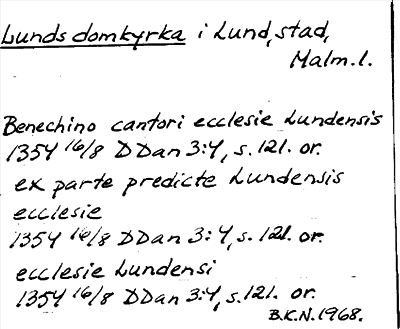 Lunds domkyrka i Lund, stad,
Malm. l.
Benechino cantori ecclesie Lundensis
1354 16/8 DDan 3:4, s. 121. or.
ex parte predicte Lundensis
ecclesie
1354 16/8 DDan 3:4, s. 121. or.
ecclesie Lundensi
1354 16/8 DDan 3:4, s. 121. or.
B.K.N. 1968.